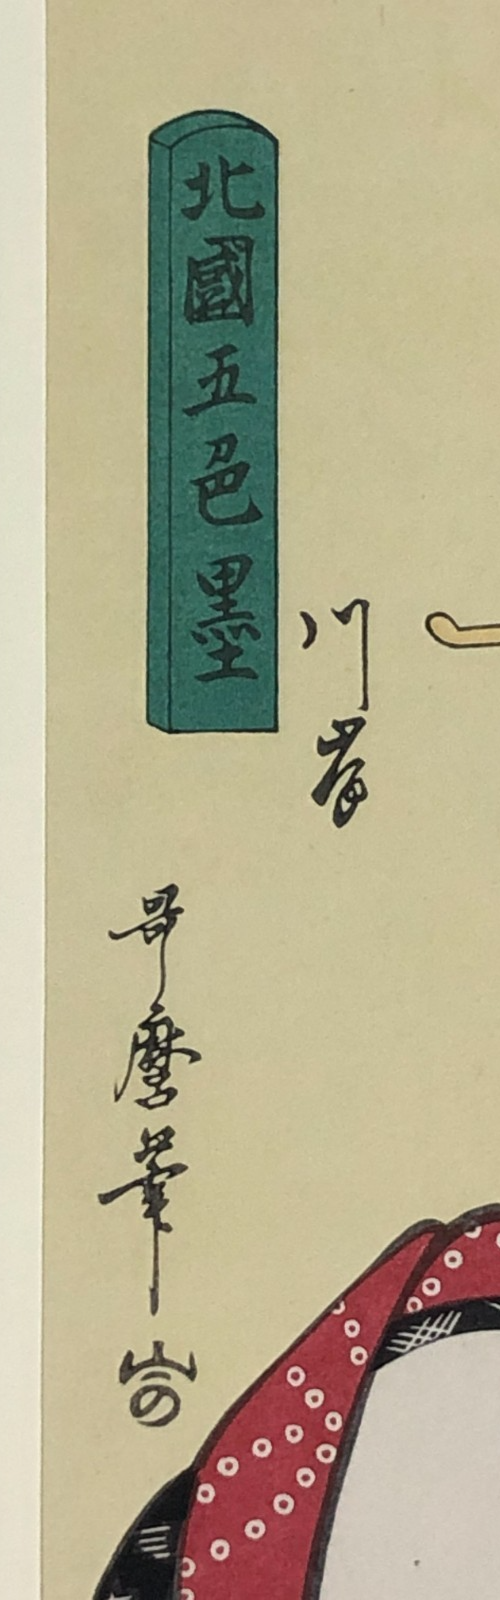 北國五色墨
川岸
哥麿筆